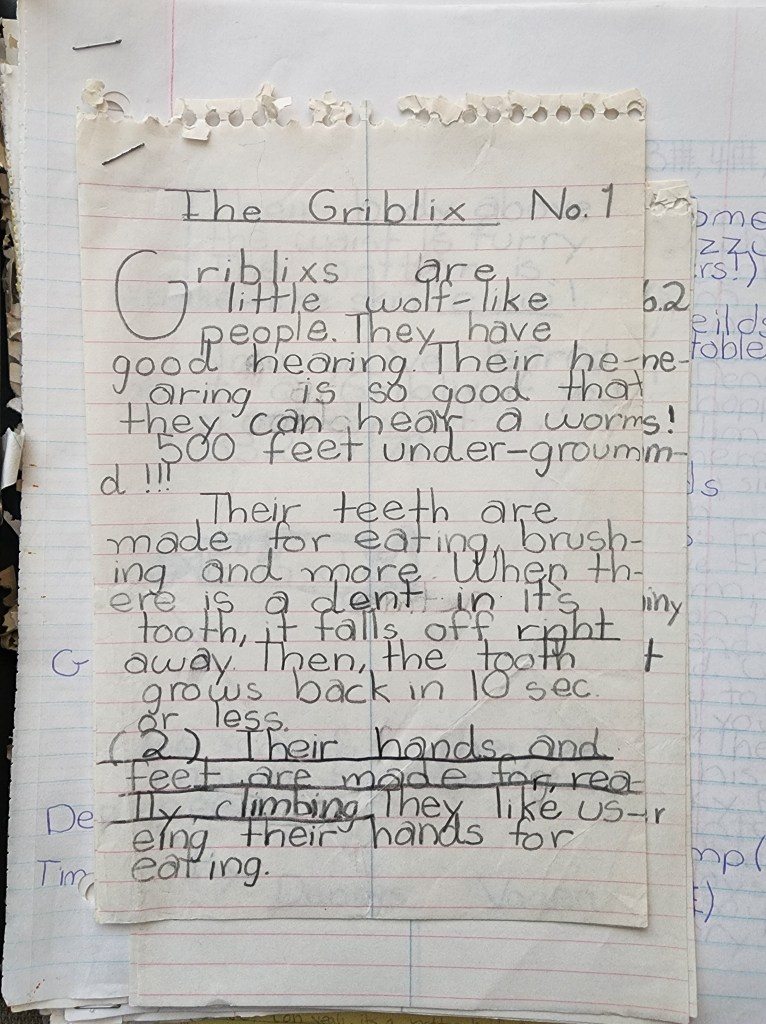 The Griblix No. 1
Griblixs are
little wolf-like
people. They have
good hearing. Their he-
aring is so good that
they can hear a worms!
500 feet under-groumm-
d !!!
Their teeth are
made for eating, brush-
ing and more. When th-
ere is a dent in it's
tooth, it falls off right
away. Then, the tooth
grows back in 10 sec.
or less.
(2) Their hands and
feet are made for rea-
lly, climbing They like us-
eing their hands for
eating.